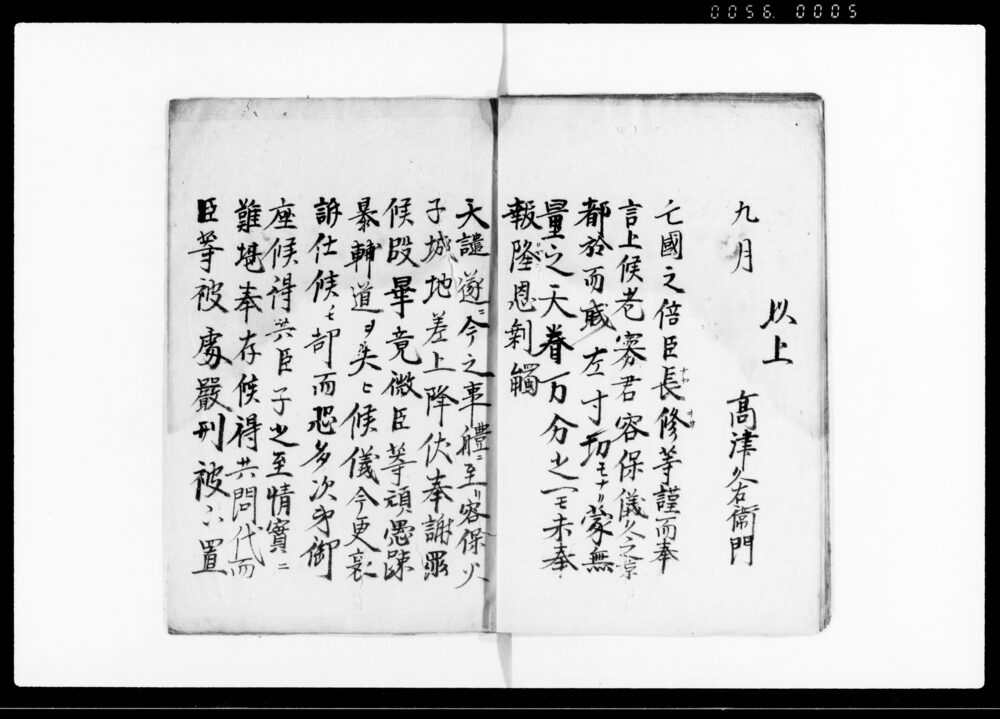 0056 0005
以上
九月　高津久右衛門
亡國之倍臣長修等謹而奉
言上候老寡君容保儀久之京
都於而戚左寸功モナリ蒙無
量之天眷万分之一モ未奉
報隆恩剰觸
天譴遂ニ今之事軆ニ至リ容保父
子城地差上降伏奉謝罪
候段畢竟微臣等頑愚疎
暴輔道ヲ失ヒ候儀今更哀
訴仕候モ却而恐多次第御
座候得共臣子之至情實ニ
難堪奉存候得共問代而
臣等被處嚴刑被下置